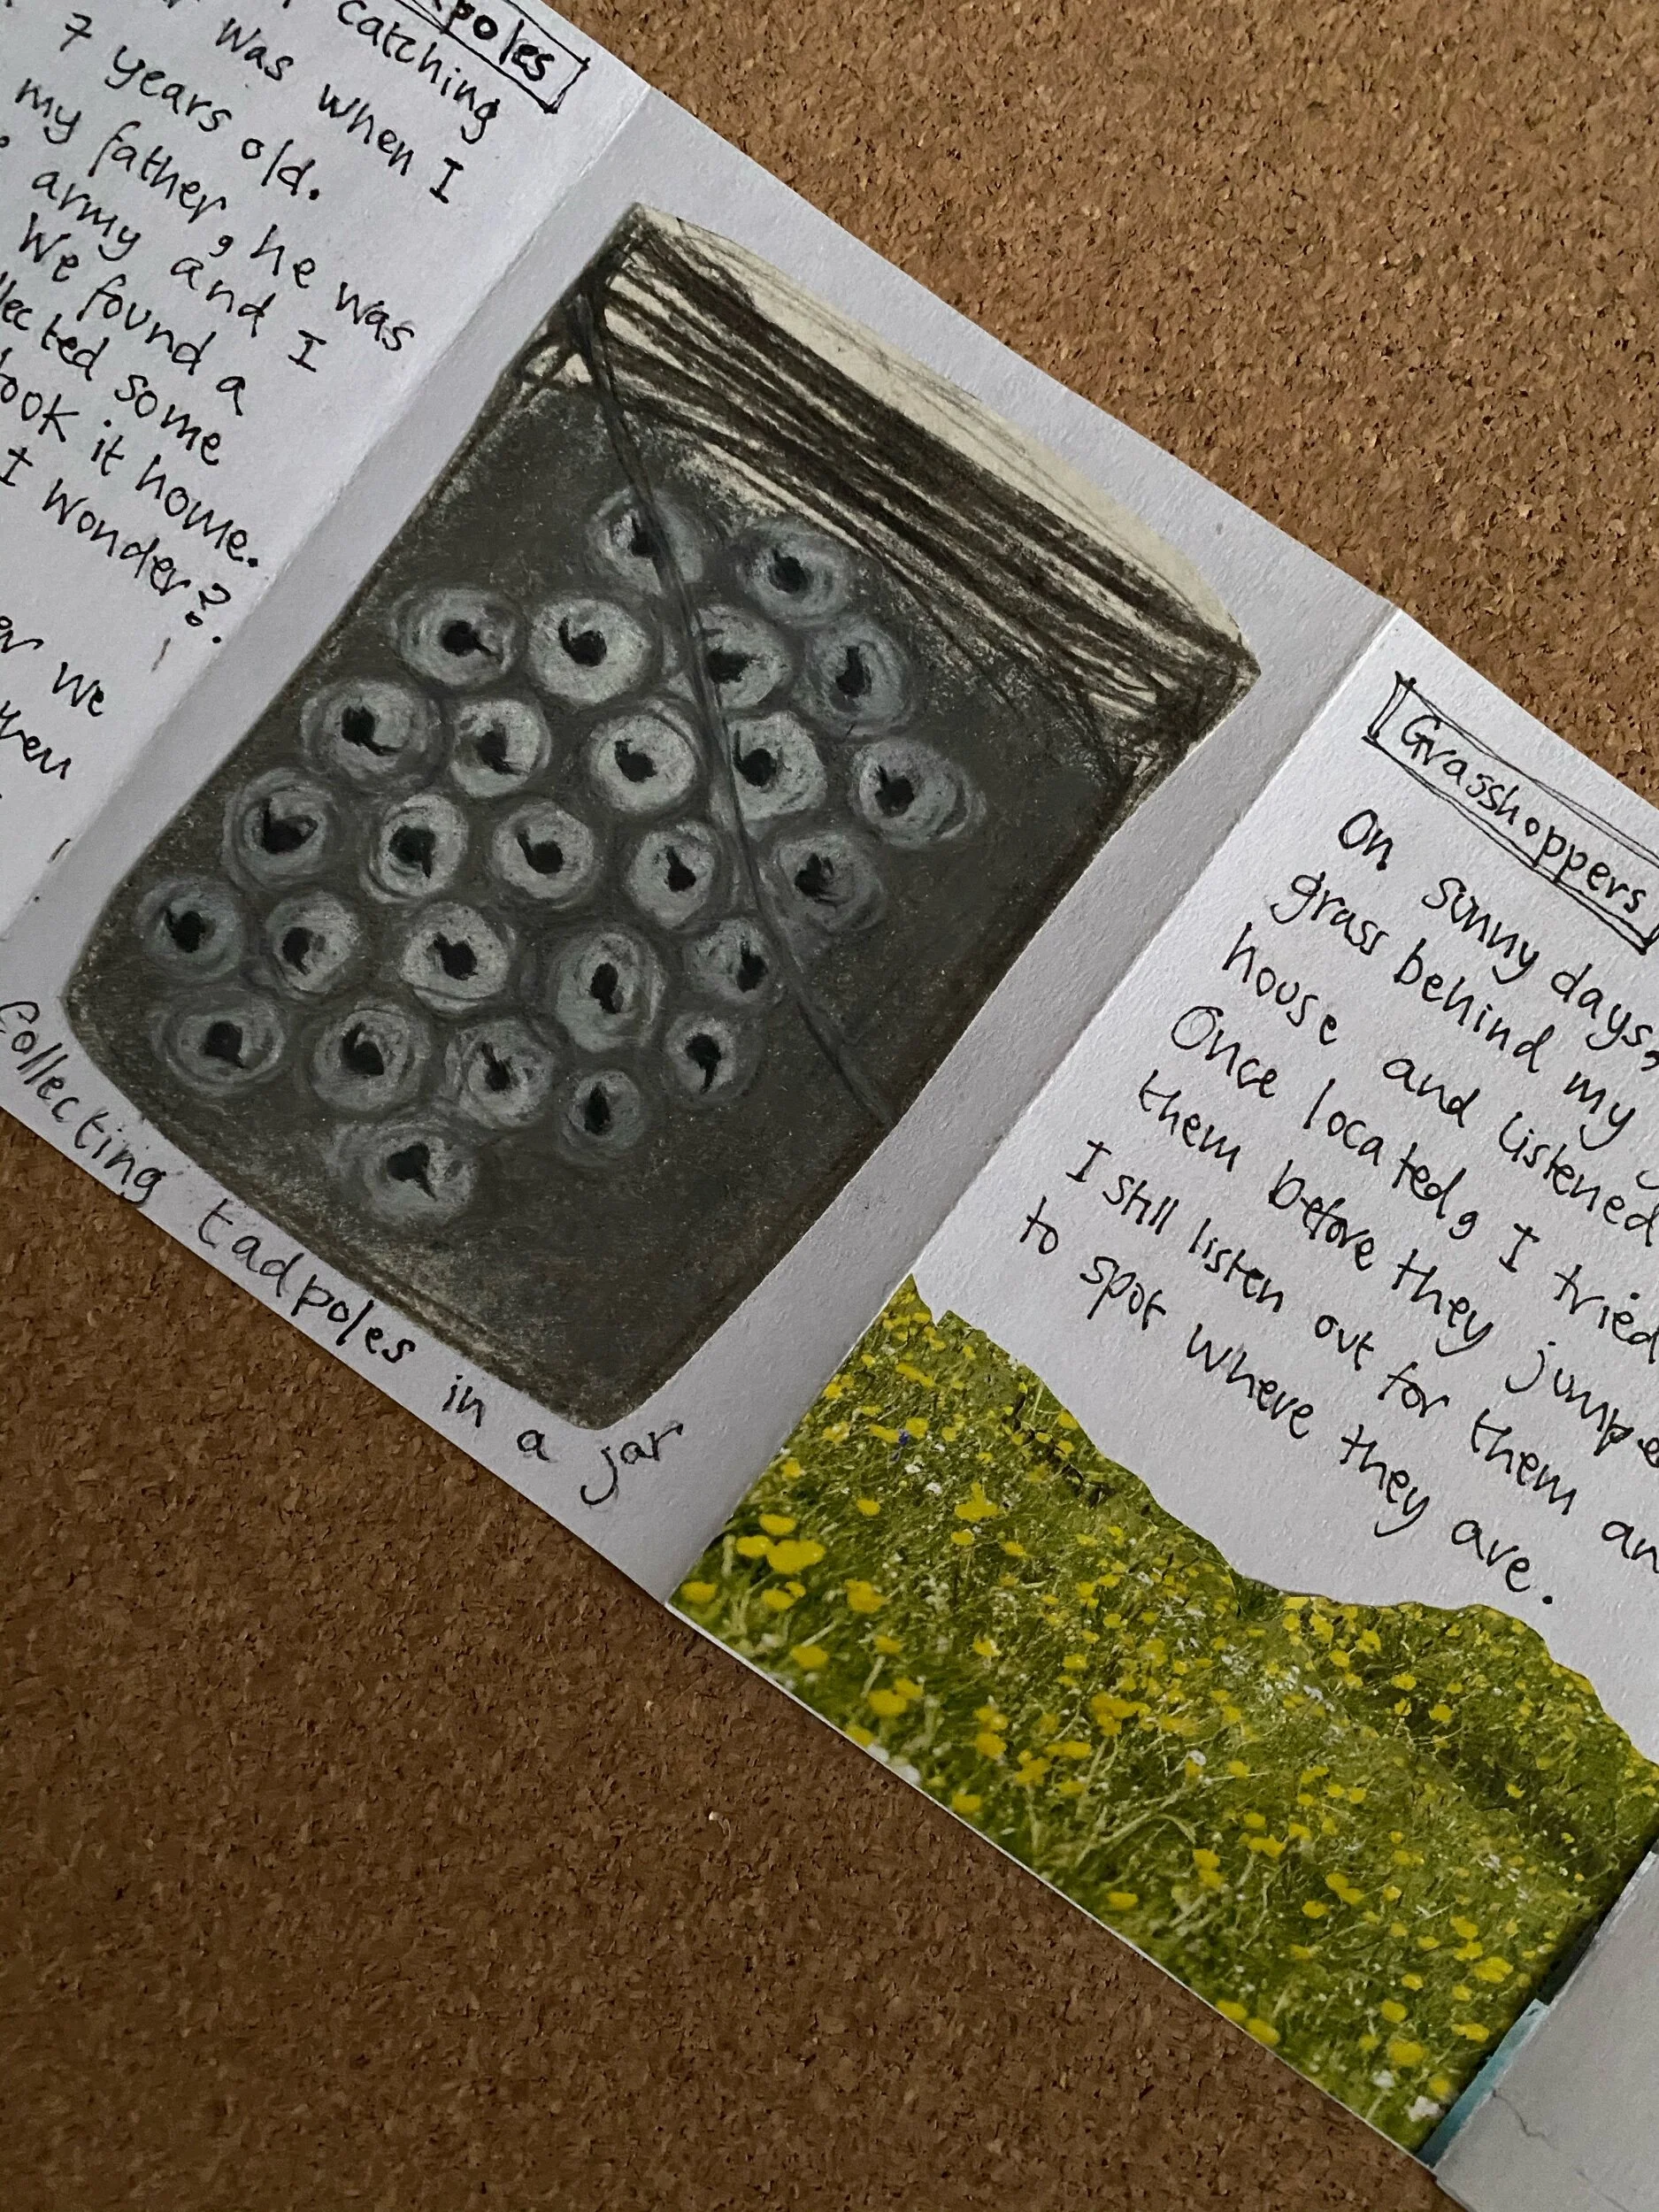 poles
catching
was when I
7 years old.
my father, he was
army and I
We found a
lected some
ook it home.
I wonder?
we
Collecting tadpoles in a jar
Grasshoppers
On sunny days,
grass behind my
house and listened
Once located, I tried
them before they jumpe
I still listen out for them an
to spot where they are.